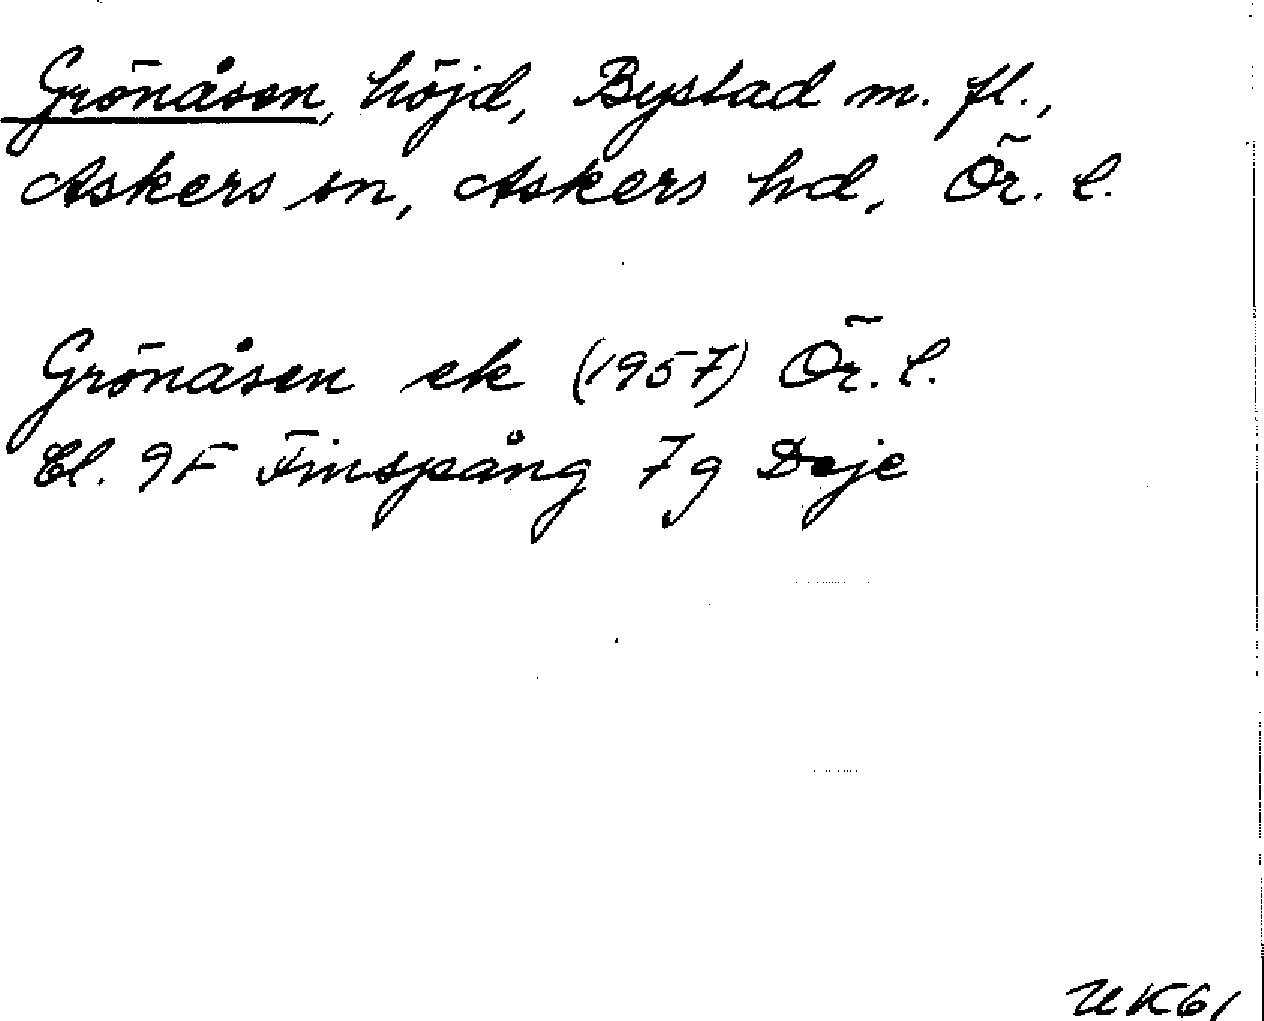 Grönåsen, höjd, Bystad m. fl.,
Askers sn, Askers hd, Ör. l.
Grönåsen ek (1957) Ör. l.
Bl. 9F Finspång 7g Deje
UK61